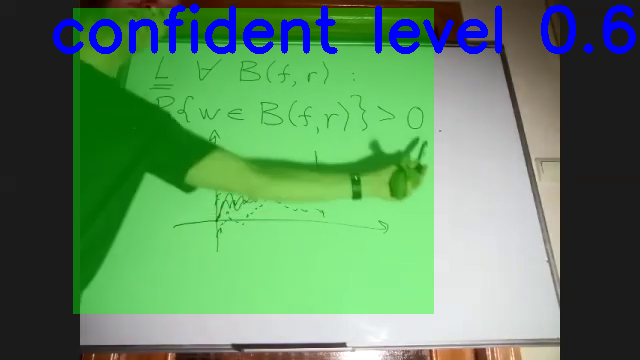 confident level 0.6
L ∀ B(f,r) :
P{w ∈ B(f,r)} > 0